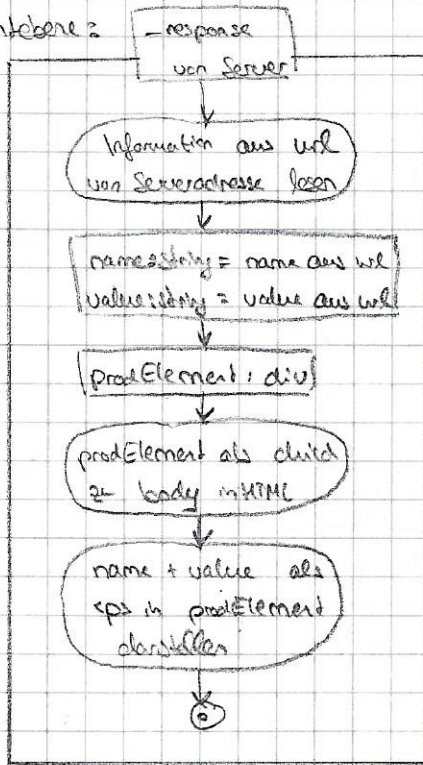 -response
von Server
Information aus url
von Serveradresse lesen
name:string = name aus url
value:string = value aus url
prodElement: div
prodElement als child
zu body in HTML
name + value als
<p> in prodElement
darstellen